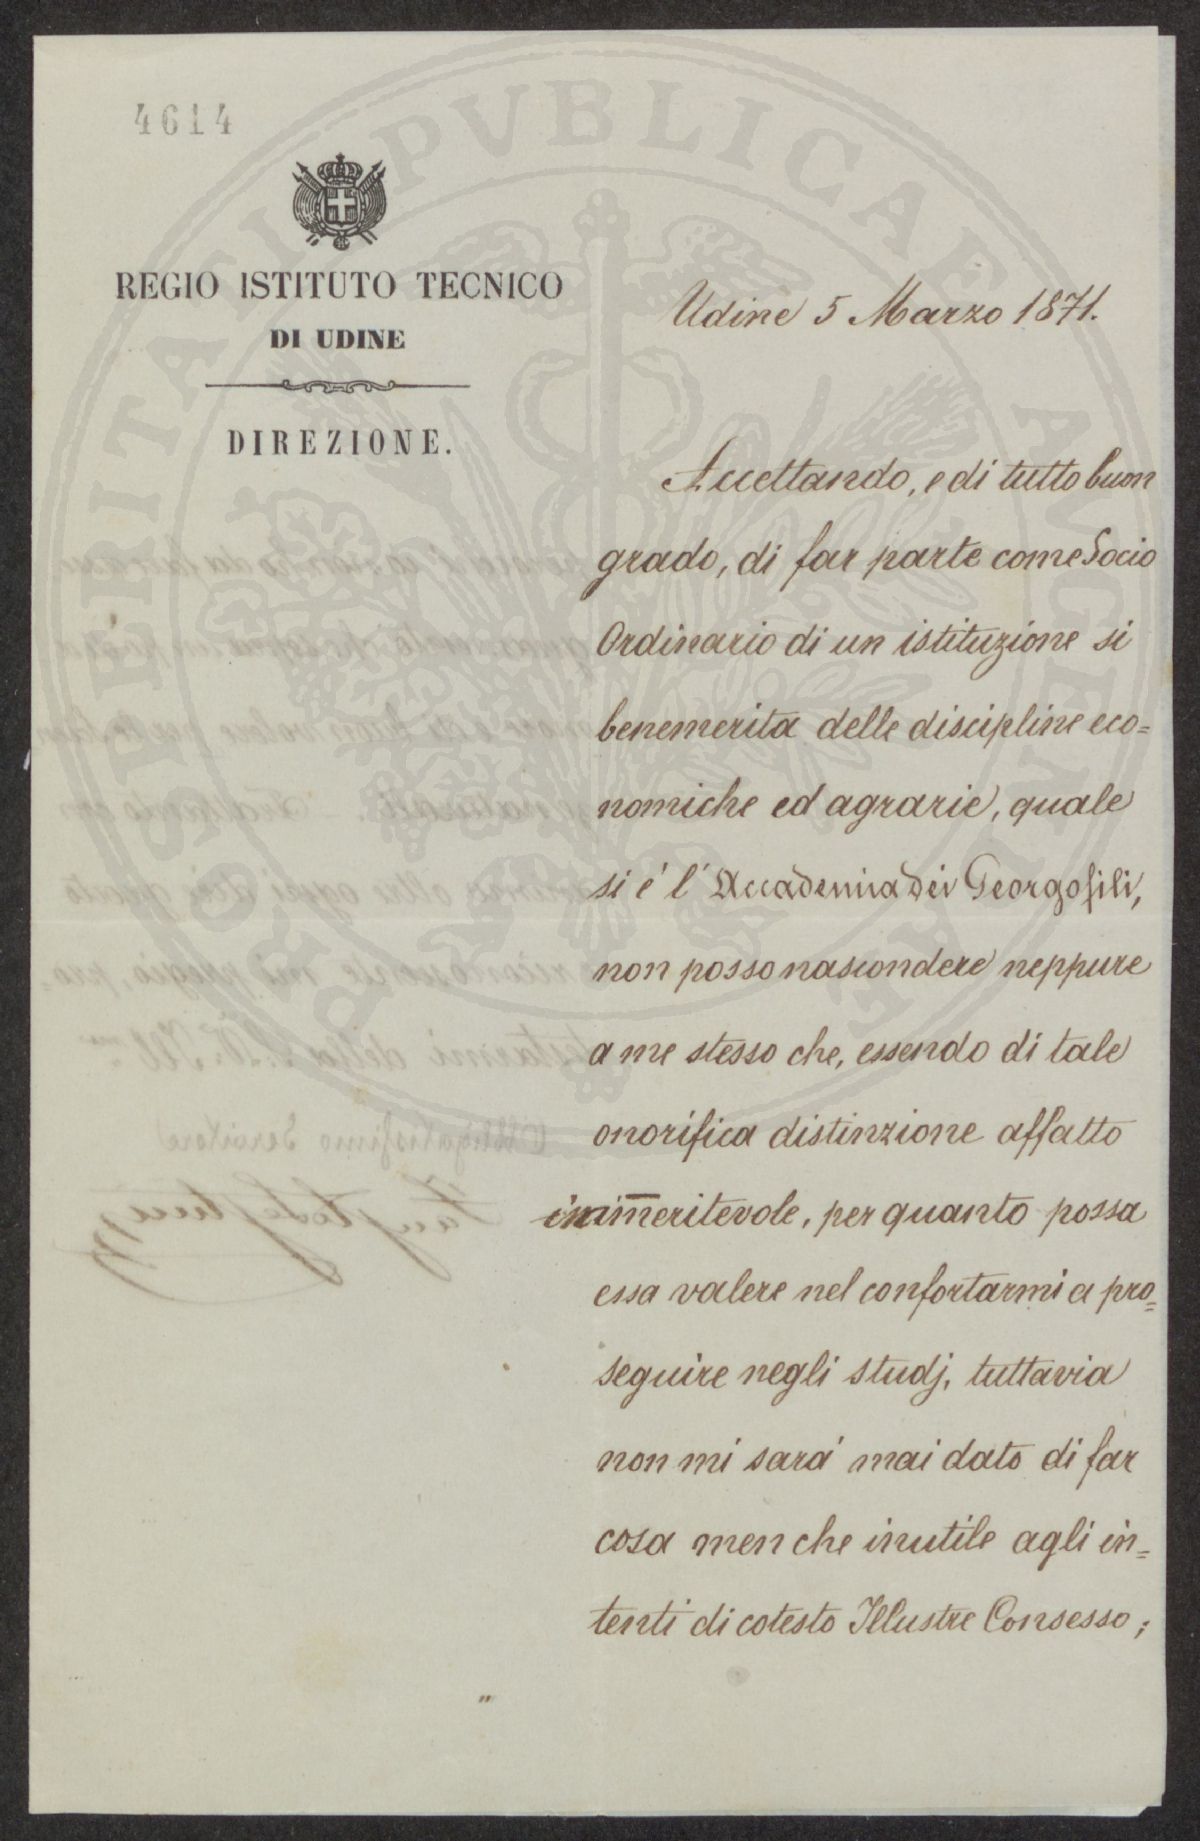 4614
REGIO ISTITUTO TECNICO
DI UDINE
DIREZIONE.
Udine 5 Marzo 1871.
Accettando, e di tutto buon
grado, di far parte come Socio
Ordinario di un istituzione si
benemerita delle discipline eco=
nomiche ed agrarie, quale
si é l' Accademia dei Georgofili,
non posso nascondere neppure
a me stesso che, essendo di tale
onorifica distinzione affatto
immeritevole, per quanto possa
essa valere nel confortarmi a pro=
seguire negli studj, tuttavia
non mi sará mai dato di far
cosa men che inutile agli in=
tenti di cotesto Illustre Consesso;
PROSPERITATI PVBLICAE AVGENDAE